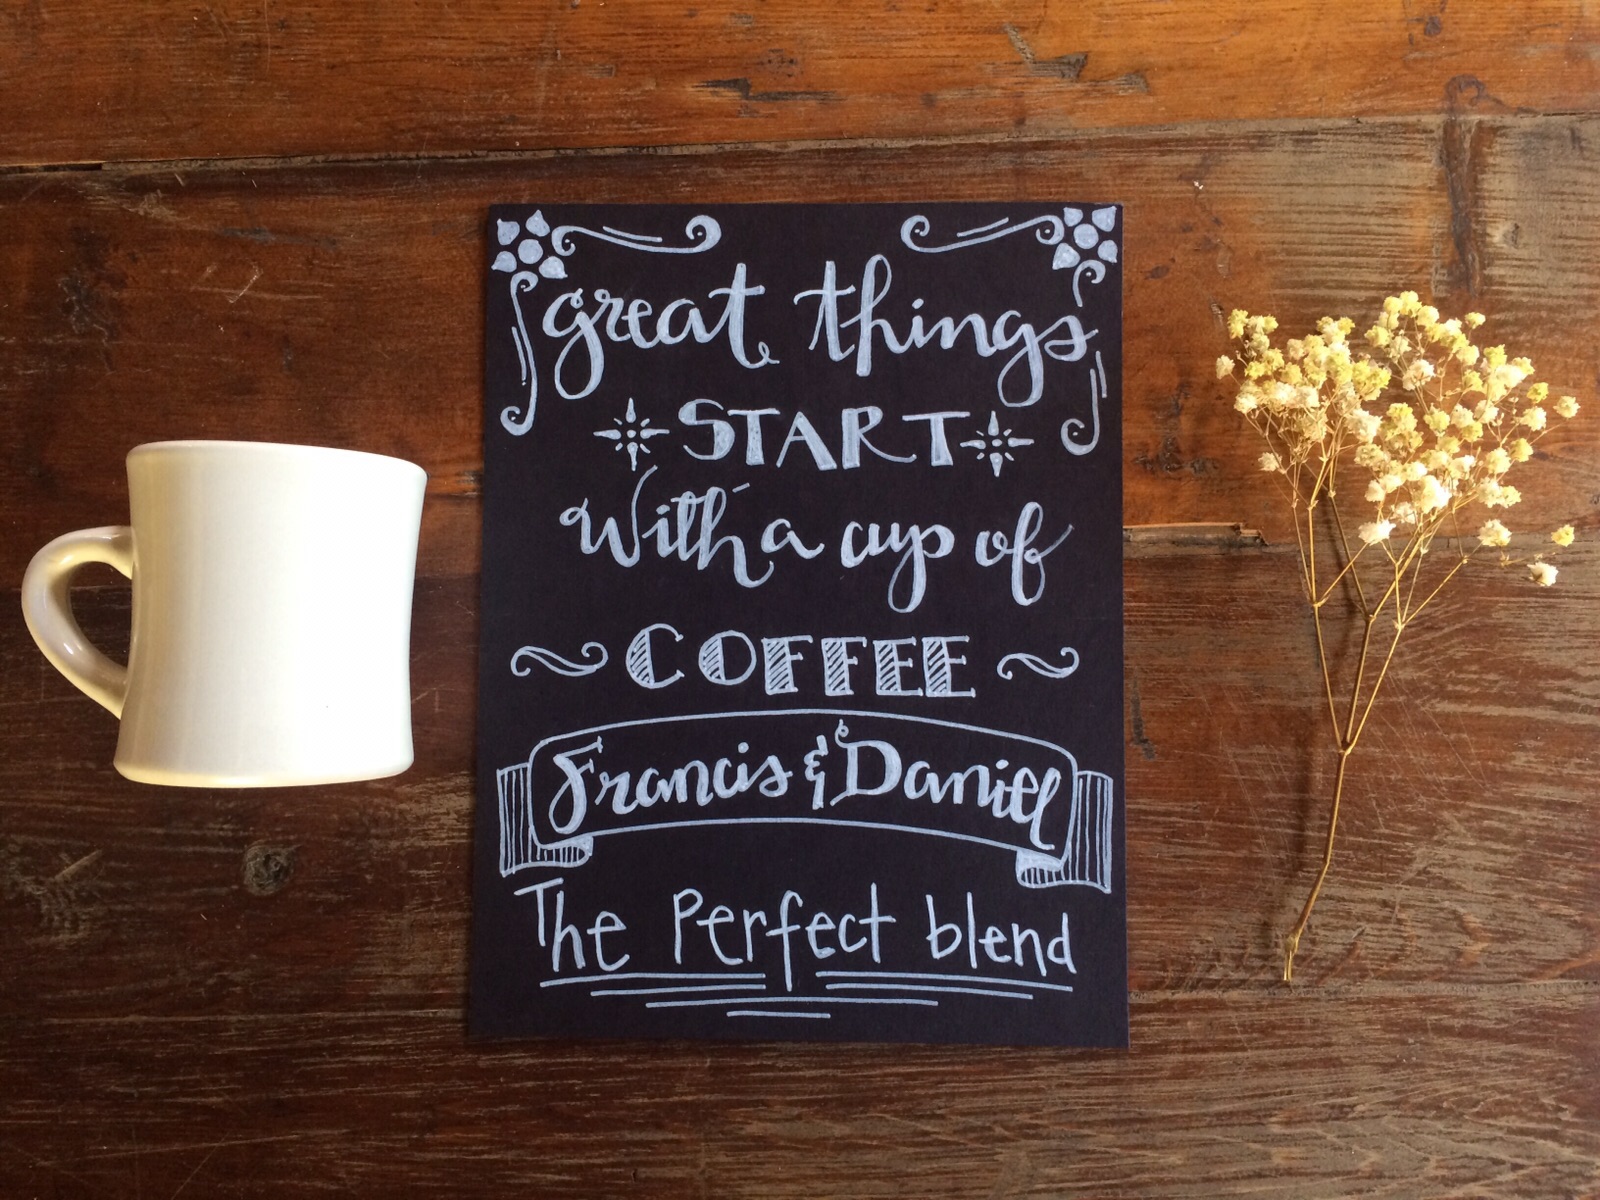 great things
START
With a cup of
COFFEE
Francis & Daniel
The Perfect blend